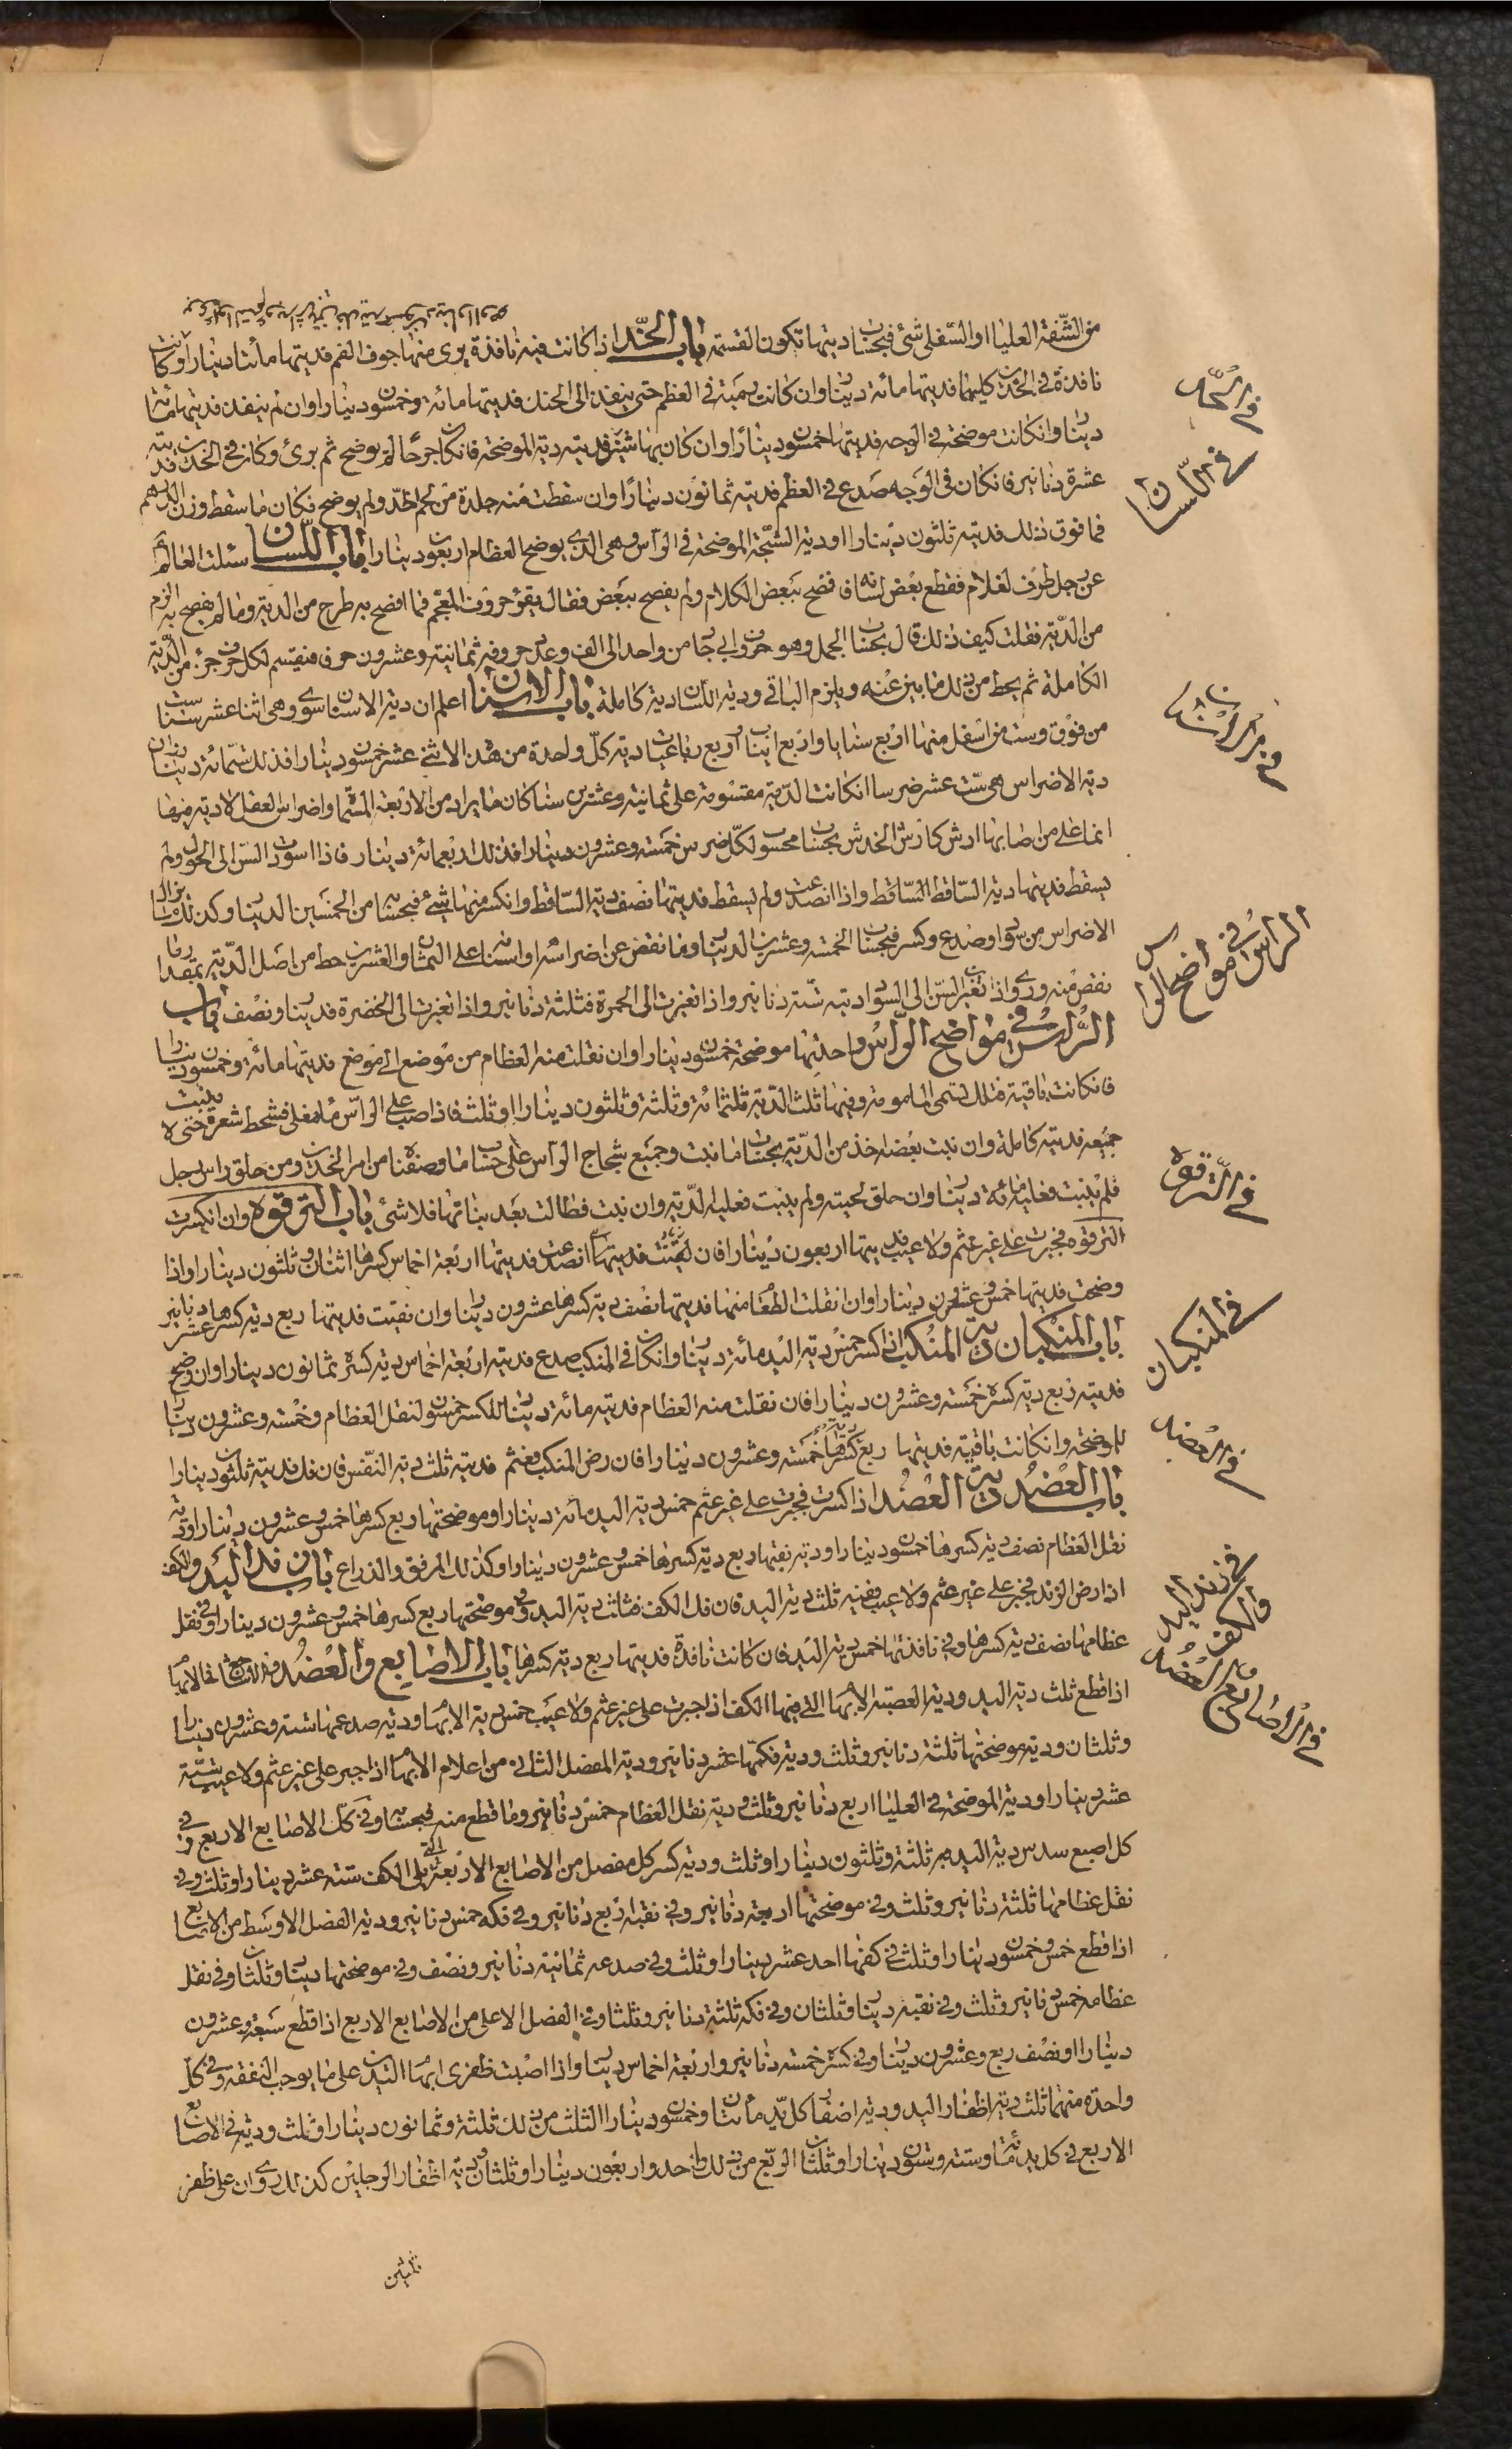 من الشفة العليا او السفلى شئ فبحساب ديتها تكون القسمة باب الخد اذا كانت فيه نافذة يرى منها جوف الفم فديتها مائتا دينار او كانت
نافذة في الخدين كليهما فديتها مائة دينار وان كانت رمية في العظم حتى ينفذ الى الحنك فديتها مائة وخمسون دينارا وان لم ينفذ فديتها مائة
دينار وان كانت موضحة في الوجه فديتها خمسون دينارا وان كان بها شين فديته دية الموضحة فان كان جرحا لم يوضح ثم برئ وكان في الخدين فديته
عشرة دنانير فان كان في الوجه صدع في العظم فديته ثمانون دينارا وان سقطت منه جلدة من لحم الخد ولم يوضح فكان ما سقط وزن الدرهم
فما فوق ذلك فديته ثلثون دينارا ودية الشجة الموضحة في الراس وهي الذي يوضح العظام اربعون دينارا باب اللسان سئلت العالم
عن رجل طرف لغلام فقطع بعض لسانه فافصح ببعض الكلام ولم يفصح ببعض فقال يقرؤ حروف المعجم فما افصح به طرح من الدية وما لم يفصح به الزم
من الدية فقلت كيف ذلك قال بحساب الجمل وهو حروف ابي جاد من واحد الى الف وعدد حروفه ثمانية وعشرون حرف فيقسم لكل حرف جزء من الدية
الكاملة ثم يحط من ذلك ما يبين عنه ويلزم الباقي ودية اللسان دية كاملة باب الاسنان اعلم ان دية الاسنان سوى وهي اثنا عشر سنا ست
من فوق وست من اسفل منها اربع ثنايا واربع انياب واربع رباعيات دية كل واحدة من هذه الاثني عشر خمسون دينارا فذلك ستمائة دينار وان
دية الاضراس هي ست عشر ضرسا ان كانت الدية مقسومة على ثمانية وعشرين سنا كان ما يراد من الاربعة المسماة واضراس العقل لا دية فيها
انما على من اصابها ارش كارش الخدش بحساب محسوب لكل ضرس خمسة وعشرون دينارا فذلك اربعمائة دينار فاذا اسودت السن الى الحول ولم
يسقط فديتها دية الساقط الساقط واذا انصدعت ولم يسقط فديتها نصف دية الساقط وان انكسر منها شئ فبحسابه من الخمسين الدينار وكذلك ما يزال
الاضراس من سواد وصدع وكسر فبحساب الخمسة وعشرين الدينار وما نقص عن اضراسه او اسنانه على الثمان والعشرين حط من اصل الدية بمقدار ما
نقص منه وروي اذا تغير السن الى السواد ديته ستة دنانير واذا تغيرت الى الحمرة فثلثة دنانير واذا تغيرت الى الخضرة فدينار ونصف باب
الراس في مواضح الراس واحدتها موضحة خمسون دينارا وان نقلت منه العظام من موضع الى موضع فديتها مائة وخمسون دينارا
فان كانت ناقبة فتلك تسمى المامومة وفيها ثلث الدية ثلثمائة وثلثة وثلثون دينارا وثلث فاذا صب على الراس ماء مغلى فشحط شعره حتى لا ينبت
جميعه فديته كاملة وان نبت بعضه اخذ من الدية بحساب ما نبت وجميع شجاج الراس على حساب ما وصفناه من امر الخدين ومن حلق راس رجل
فلم ينبت فعليه مائة دينار وان حلق لحيته ولم ينبت فعليه الدية وان نبت فطالت بعد نباتها فلا شئ باب الترقوة وان انكسرت
الترقوة فجبرت على غير عثم ولا عيب فديتها اربعون دينارا فان انصدعت فديتها اربعة اخماس كسرها اثنان وثلثون دينارا واذا
وضحت فديتها خمس وعشرون دينارا وان انقلت العظام منها فديتها نصف دية كسرها عشرون دينار وان نقبت فديتها ربع دية كسرها عشر دنانير
باب المنكبان دية المنكب اذا كسر خمس دية اليد مائة دينار وان كان في المنكب صدع فديته اربعة اخماس دية كسره ثمانون دينارا وان وضح
فديته ربع دية كسره خمسة وعشرون دينارا فان نقلت منه العظام فديته مائة دينار للكسر خمسون لنقل العظام وخمسة وعشرون دينارا
للموضحة وان كانت ناقبة فديتها ربع كسرها خمسة وعشرون دينارا فان رض المنكب فعثم فديته ثلث دية النفس فان فك فديته ثلثون دينارا
باب العضد دية العضد اذا كسرت فجبرت على غير عثم خمس دية اليد مائة دينار وموضحتها ربع كسرها خمس وعشرون دينارا ودية
نقل العظام نصف دية كسرها خمسون دينارا ودية نقبها ربع دية كسرها خمس وعشرون دينارا وكذلك المرفق والذراع باب زند اليد والكف
اذا رض الزند فجبر على غير عثم ولا عيب ففيه ثلث دية اليد فان فك الكف فثلث دية اليد وفي موضحتها ربع كسرها خمس وعشرون دينارا وفي نقل
عظامها نصف دية كسرها وفي نافذتها خمس دية اليد فان كانت نافذة فديتها ربع دية كسرها باب الاصابع والعضد
اذا قطع ثلث دية اليد ودية العصبة الابهام التي فيها الكف اذا جبرت على غير عثم ولا عيب خمس دية الابهام ودية صدعها ستة وعشرون دينارا
وثلثان ودية موضحتها ثلثة دنانير وثلث ودية فكها عشر دنانير ودية المفصل الثاني من اعلام الابهام اذا جبر على غير عثم ولا عيب ستة
عشر دينارا ودية الموضحة في العليا اربع دنانير وثلث ودية نقل العظام خمس دنانير وما قطع منه فبحسابه وفي كل الاصابع الاربع في
كل اصبع سدس دية اليد ثلثة وثلثون دينارا وثلث ودية كسر كل مفصل من الاصابع الاربعة التي يلي الكف ستة عشر دينارا وثلث وفي
نقل عظامها ثلثة دنانير وثلث وفي موضحتها اربعة دنانير وفي نقبه اربع دنانير وفي فكه خمس دنانير ودية المفصل الاوسط من الاصابع
اذا قطع خمس وخمسون دينارا وثلث في كفها احد عشر دينارا وثلث وفي صدعه ثمانية دنانير ونصف وفي موضحتها دينار وثلثان وفي نقل
عظامه خمس دنانير وثلث وفي نقبه دينار وثلثان وفي فكه ثلثة دنانير وثلثان وفي المفصل الاعلى من الاصابع الاربع اذا قطع سبعة وعشرون
دينارا ونصف ربع وعشرون دينار وفي كسره خمسة دنانير واربعة اخماس دينار واذا اصبت ظفرى ابهام اليدين على ما يوجب النفقة وفي كل
واحدة منهما ثلث دية اظفار اليد ودية اظفار كل يد مائتان وخمسون دينارا الثلث من ذلك ثلثة وثمانون دينارا وثلث ودية في الاصابع
الاربع في كل يد مائة وستة وستون دينارا وثلثان الربع من ذلك احد واربعون دينارا وثلثان ودية اظفار الرجلين كذلك روي ان على ظفر
في الخد
في اللسان
في الاسنان
الراس في مواضح الراس
في الترقوة
في المنكبان
في العضد
في زند اليد
والكف
في الاصابع والعضد